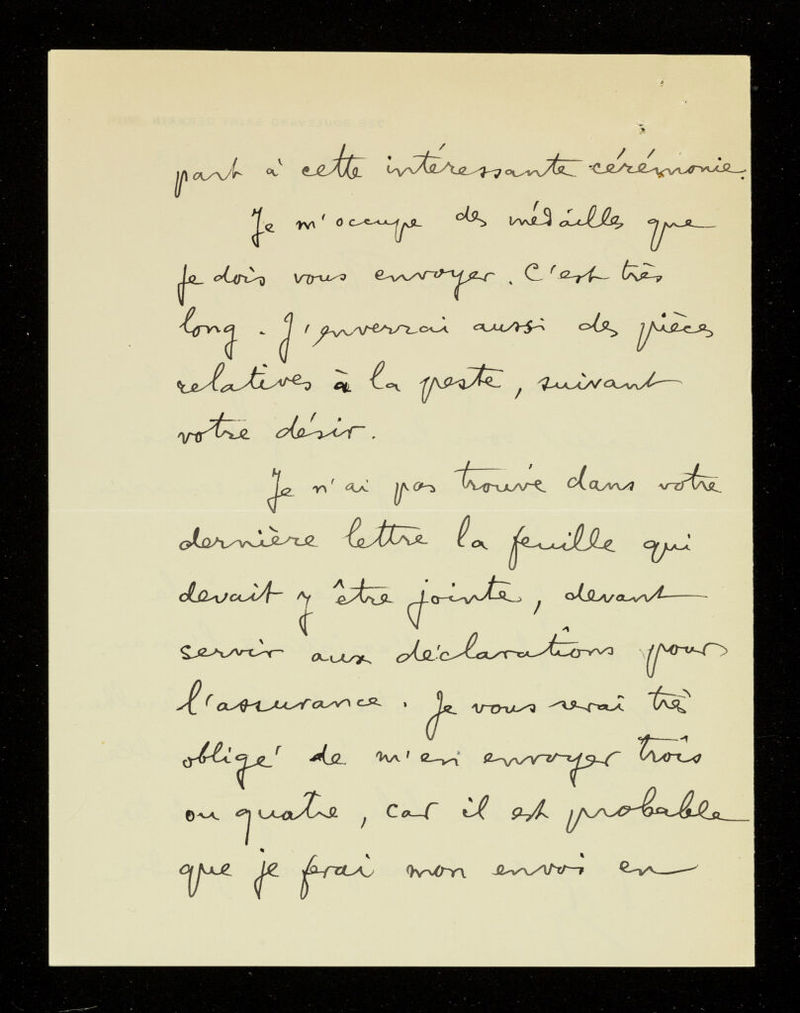 part à cette intéressante cérémonie.
Je m'occupe des médailles que
je dois vous envoyer. C'est très
long. J'enverrai aussi des pièces
relatives à la peste, suivant
votre désir.
Je n'ai pas trouvé dans votre
dernière lettre la feuille qui
devait y être jointe, devant
servir aux déclarations pour
l'assurance. Je vous serai très
obligé de m'en envoyer trois
ou quatre, car il est probable
que je ferai mon envoi en